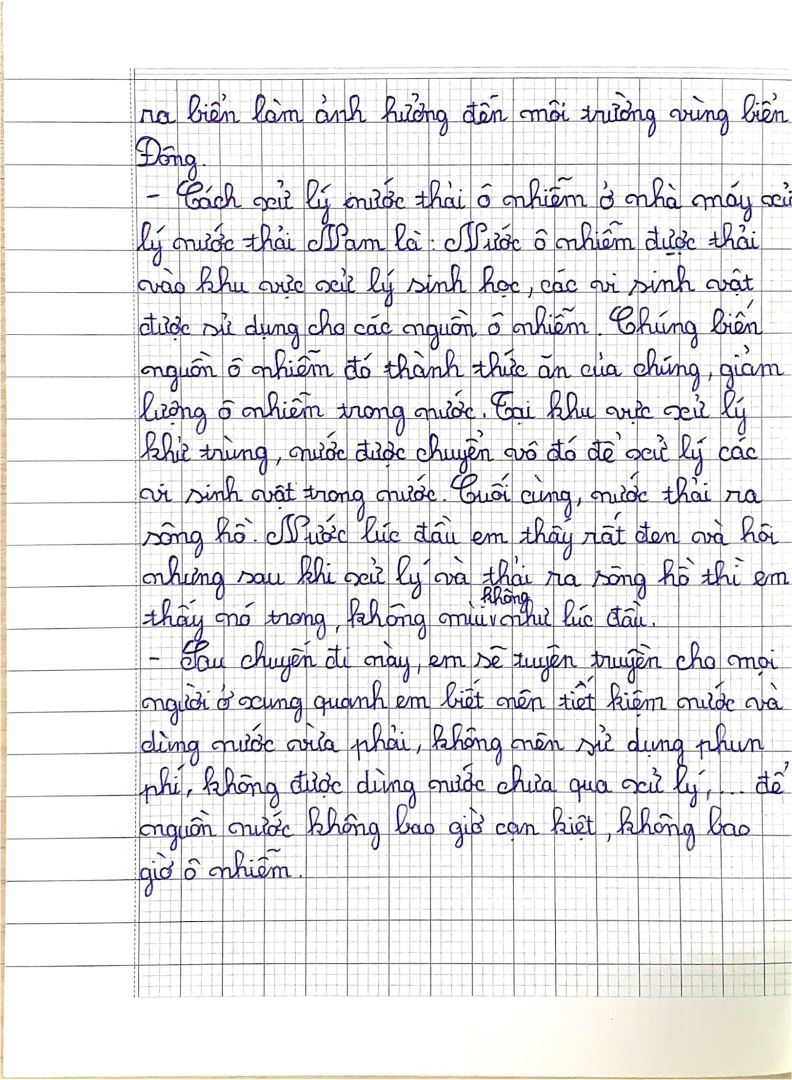 ra biển làm ảnh hưởng đến môi trường vùng biển
Đông.
- Cách xử lý nước thải ô nhiễm ở nhà máy xử
lý nước thải Nam là: Nước ô nhiễm được thải
vào khu vực xử lý sinh học, các vi sinh vật
được sử dụng cho các nguồn ô nhiễm. Chúng biến
nguồn ô nhiễm đó thành thức ăn của chúng, giảm
lượng ô nhiễm trong nước. Tại khu vực xử lý
khử trùng, nước được chuyển vô đó để xử lý các
vi sinh vật trong nước. Cuối cùng, nước thải ra
sông hồ. Nước lúc đầu em thấy rất đen và hôi
nhưng sau khi xử lý và thải ra sông hồ thì em
thấy nó trong, không mùi không như lúc đầu.
- Sau chuyến đi này, em sẽ tuyên truyền cho mọi
người ở xung quanh em biết nên tiết kiệm nước và
dùng nước vừa phải, không nên sử dụng phun
phí, không được dùng nước chưa qua xử lý,... để
nguồn nước không bao giờ cạn kiệt, không bao
giờ ô nhiễm.